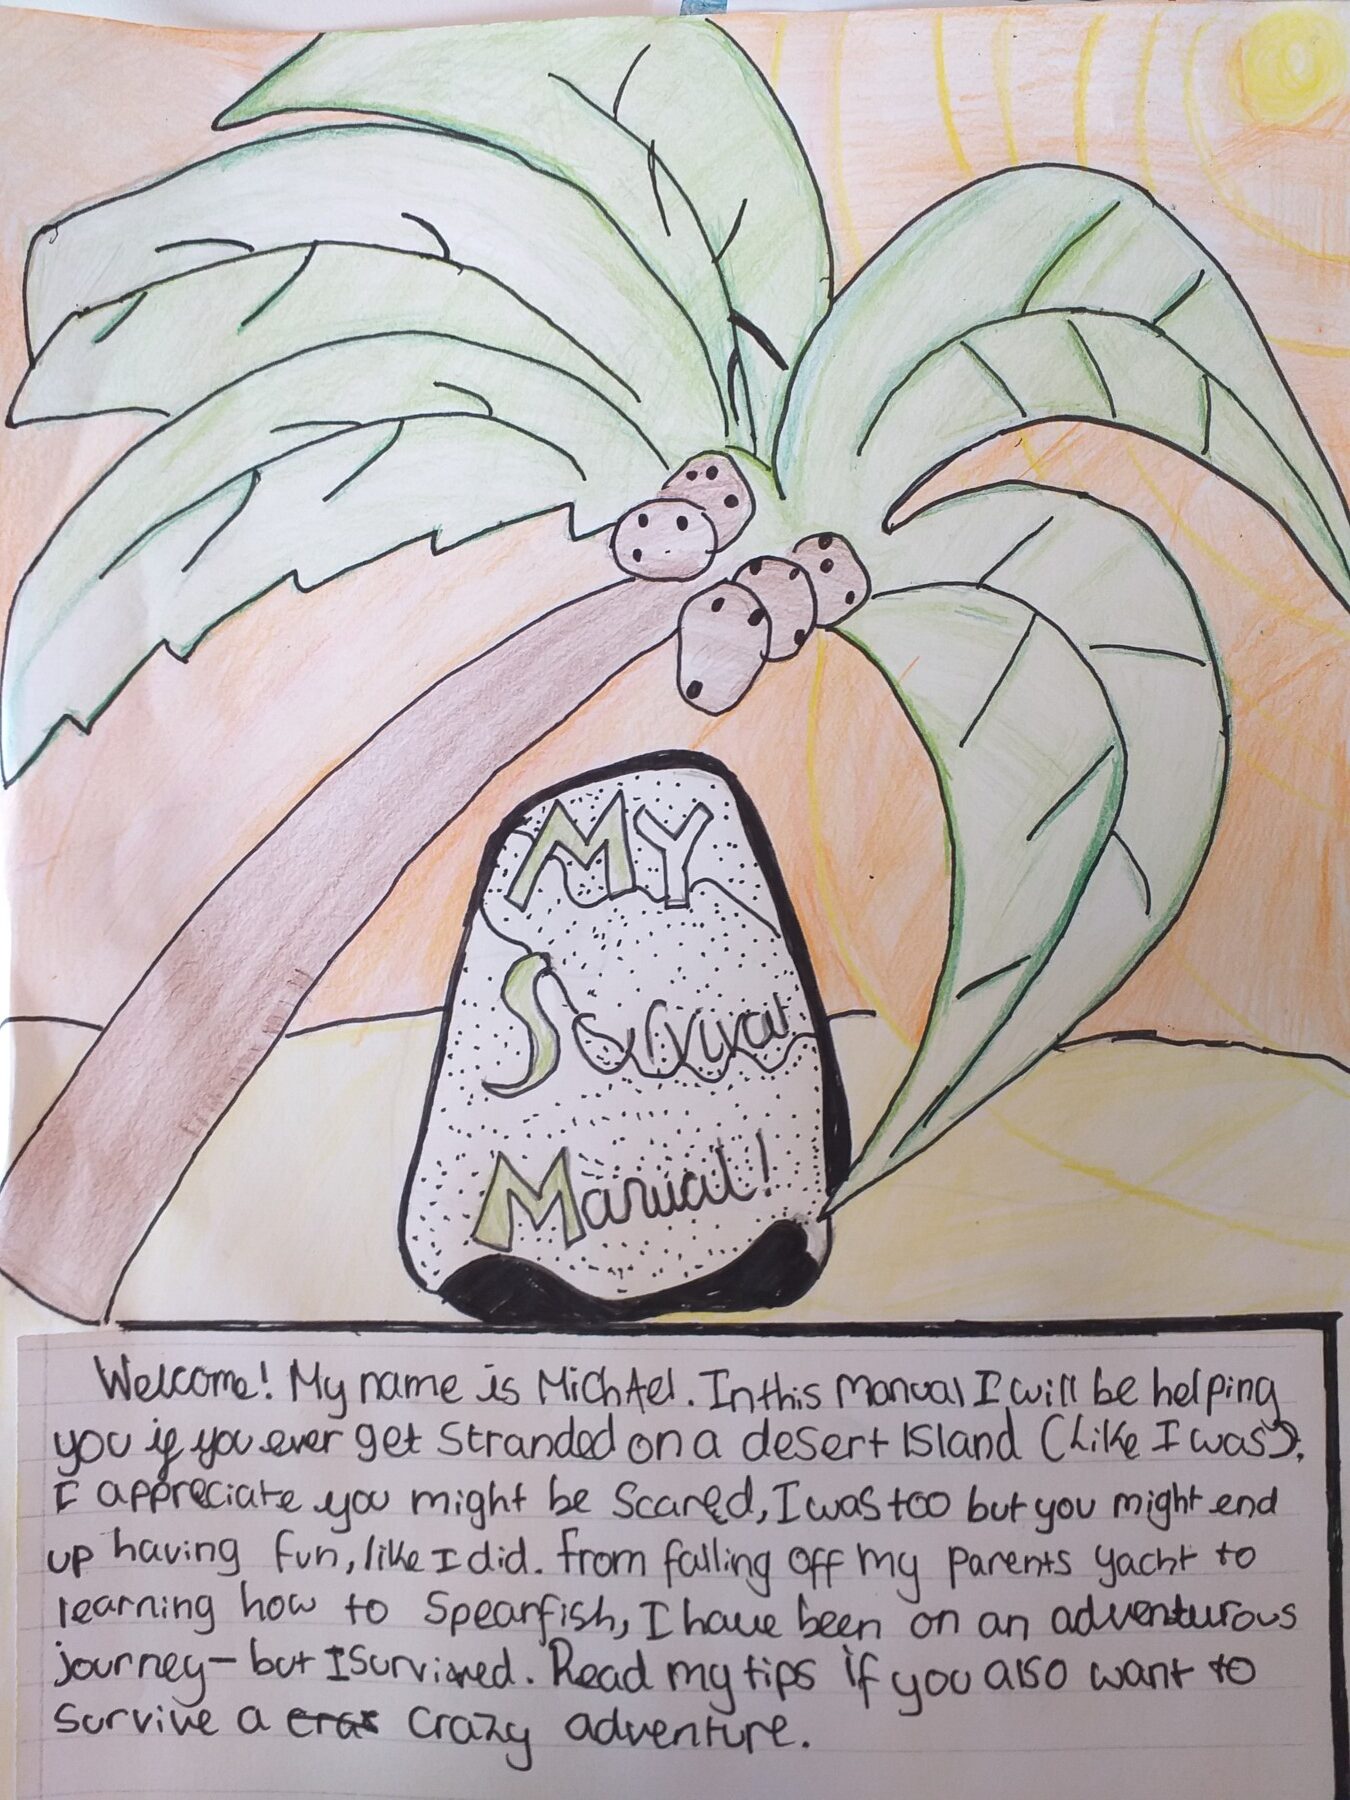 MY
Survival
Manual!
Welcome! My name is MichAel. In this manual I will be helping
you if you ever get stranded on a desert Island (Like I was).
I appreciate you might be scared, I was too but you might end
up having fun, like I did. From falling off my parents yacht to
learning how to spearfish, I have been on an adventurous
journey - but I survived. Read my tips if you also want to
survive a crazy adventure.